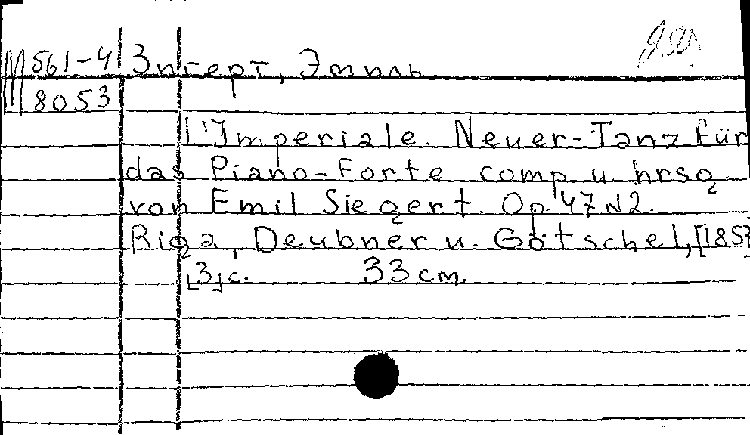 М 561-4 Зигерт, Эмиль
8053
L'Imperiale. Neuer-Tanz für
das Piano-Forte comp. u. hrsg
von Emil Siegert. Op. 47 N2.
Riga, Deubner u. Götschel, [185
[3] с. 33 см.